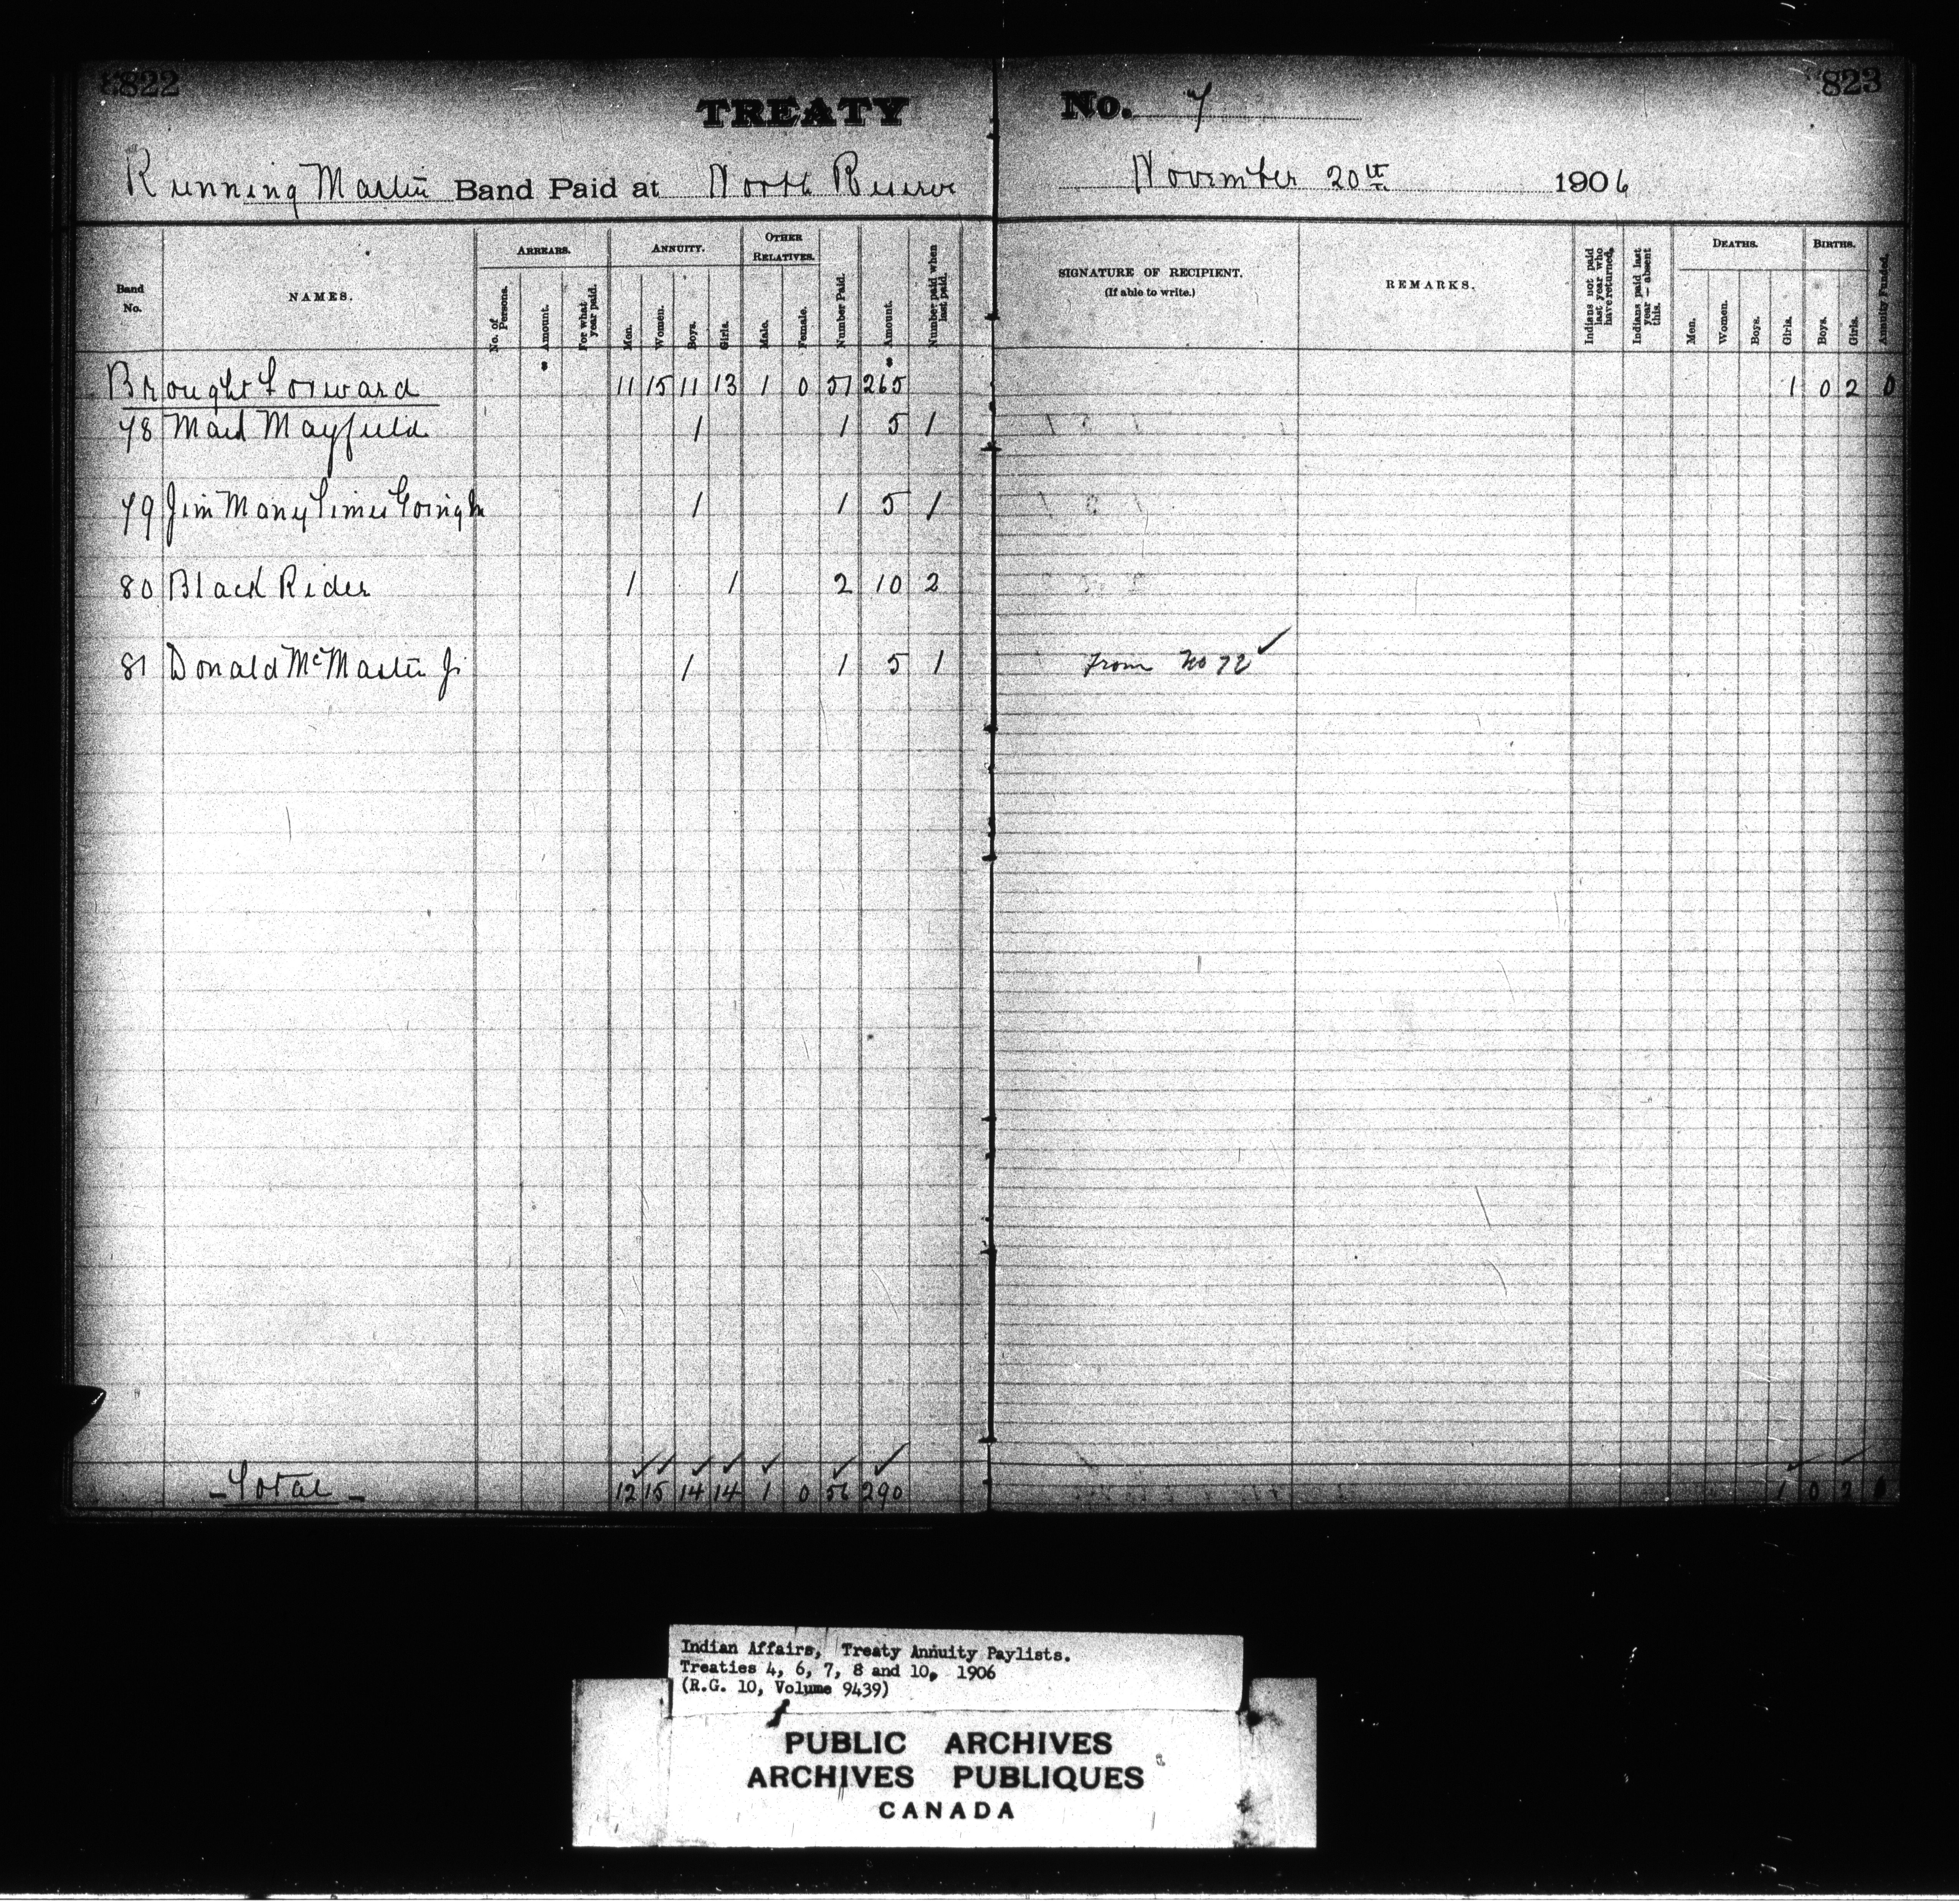 822
823
TREATY No. 7
Running Martin Band Paid at North Reserve November 20th 1906
Band No. NAMES. ARREARS. No. of Persons. Amount. For what year paid. ANNUITY. Men. Women. Boys. Girls. OTHER RELATIVES. Male. Female. Number Paid. Amount. Number paid when last paid. SIGNATURE OF RECIPIENT. (If able to write.) REMARKS. Indians not paid last year who have returned. Indians paid last year — absent this. DEATHS. Men. Women. Boys. Girls. BIRTHS. Boys. Girls. Annuity Funded.
$ $
Brought Forward 11 15 11 13 1 0 51 265 1 0 2 0
78 Mayfield 1 1 5 1
79 Jim Many Times Going In 1 1 5 1
80 Black Rider 1 1 2 10 2
81 Donald McMaster Jr 1 1 5 1 From No 72 ✓
✓ ✓ ✓ ✓ ✓ ✓ ✓ ✓ ✓
- Total - 12 15 14 14 1 0 56 290 1 0 2 0
Indian Affairs, Treaty Annuity Paylists.
Treaties 4, 6, 7, 8 and 10, 1906
(R.G. 10, Volume 9439)
PUBLIC ARCHIVES
ARCHIVES PUBLIQUES
CANADA